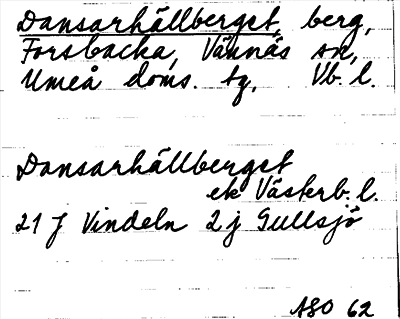 Dansarhällberget, berg,
Forsbacka, Vännäs sn,
Umeå doms. tg, Vb. l.
Dansarhällberget
ek Västerb. l.
21 J Vindeln 2 j Gullsjö
ASO 62